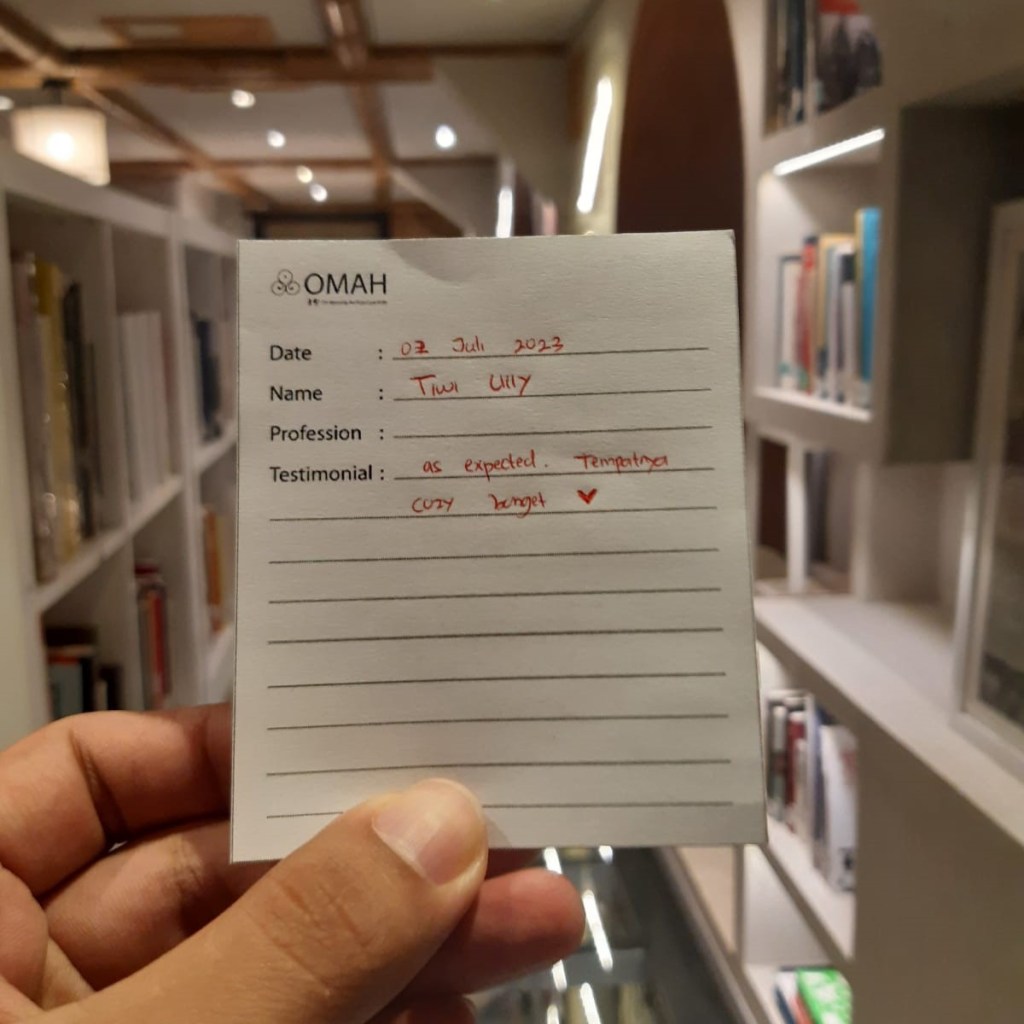 OMAH
Date : 07 Juli 2023
Name : Tiwi Ully
Profession :
Testimonial : as expected. Tempatnya
cozy banget ♥